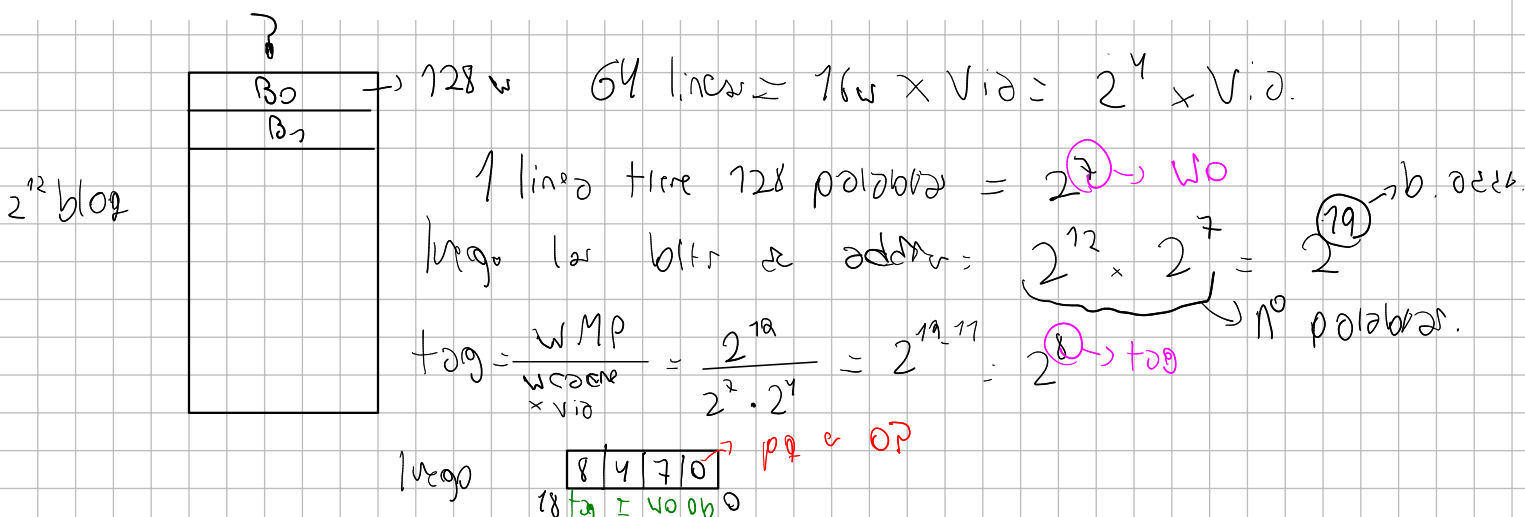 ?
B0 → 128 w 64 lineas = 16w × Via = 2^4 × Via.
B1
2^12 bloq
1 linea tiene 128 palabras = 2^7 → WO
luego las bits de addr = 2^12 × 2^7 = 2^19 → b. addr.
→ nº palabras.
tag = WMP / wcache × via = 2^19 / 2^7 · 2^4 = 2^19-11 = 2^8 → tag
luego 8 4 7 0 → pq
18 tag I WO OB 0